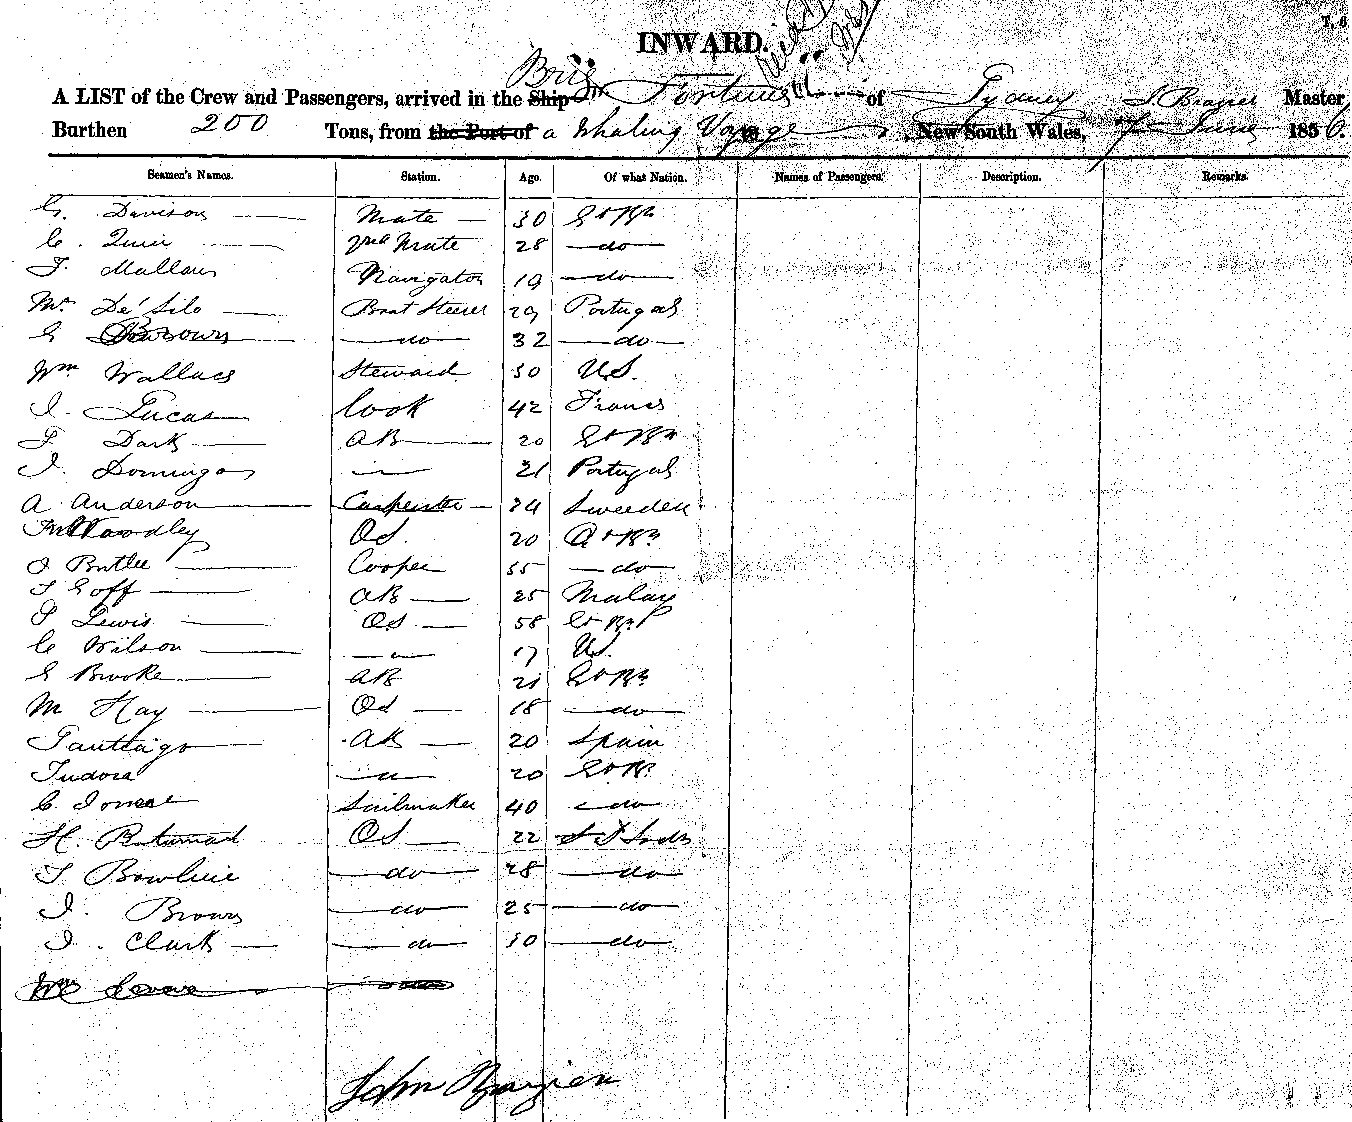 T, 6
INWARD.
A LIST of the Crew and Passengers, arrived in the Ship Brig Fortune of Sydney J Brazier Master,
Burthen 200 Tons, from the Port of a Whaling Voyage New South Wales, 7 June 1856.
Seamen's Names. Station. Age. Of what Nation. Names of Passengers. Description. Remarks.
G. Davison Mate 30 Gt Bn
C. 2nd Mate 28 do
Navigator 19 do
De'Silo Boat Steerer 29 Portugal
G Brown do 32 do
Wm Wallace Steward 30 U.S.
J. Lucas Cook 42 France
T. Dark AB 20 Gt Bn
J. Domingo 21 Portugal
A Anderson Carpenter 24 Sweeden
Woodley OS. 20 Gt Bn
J Butler Cooper 55 do
T Goff AB 25 Malay
P Lewis OS 58 Gt Bn
C Wilson 17 US.
G Brooke AB 21 Gt Bn
M Hay OS 18 do
Santiago AB 20 Spain
Tudora 20 Gt B
C. Sailmaker 40 do
H. OS 22
T do 28 do
J. Brown do 25 do
J. Clark do 30 do
Wm
John Brazier